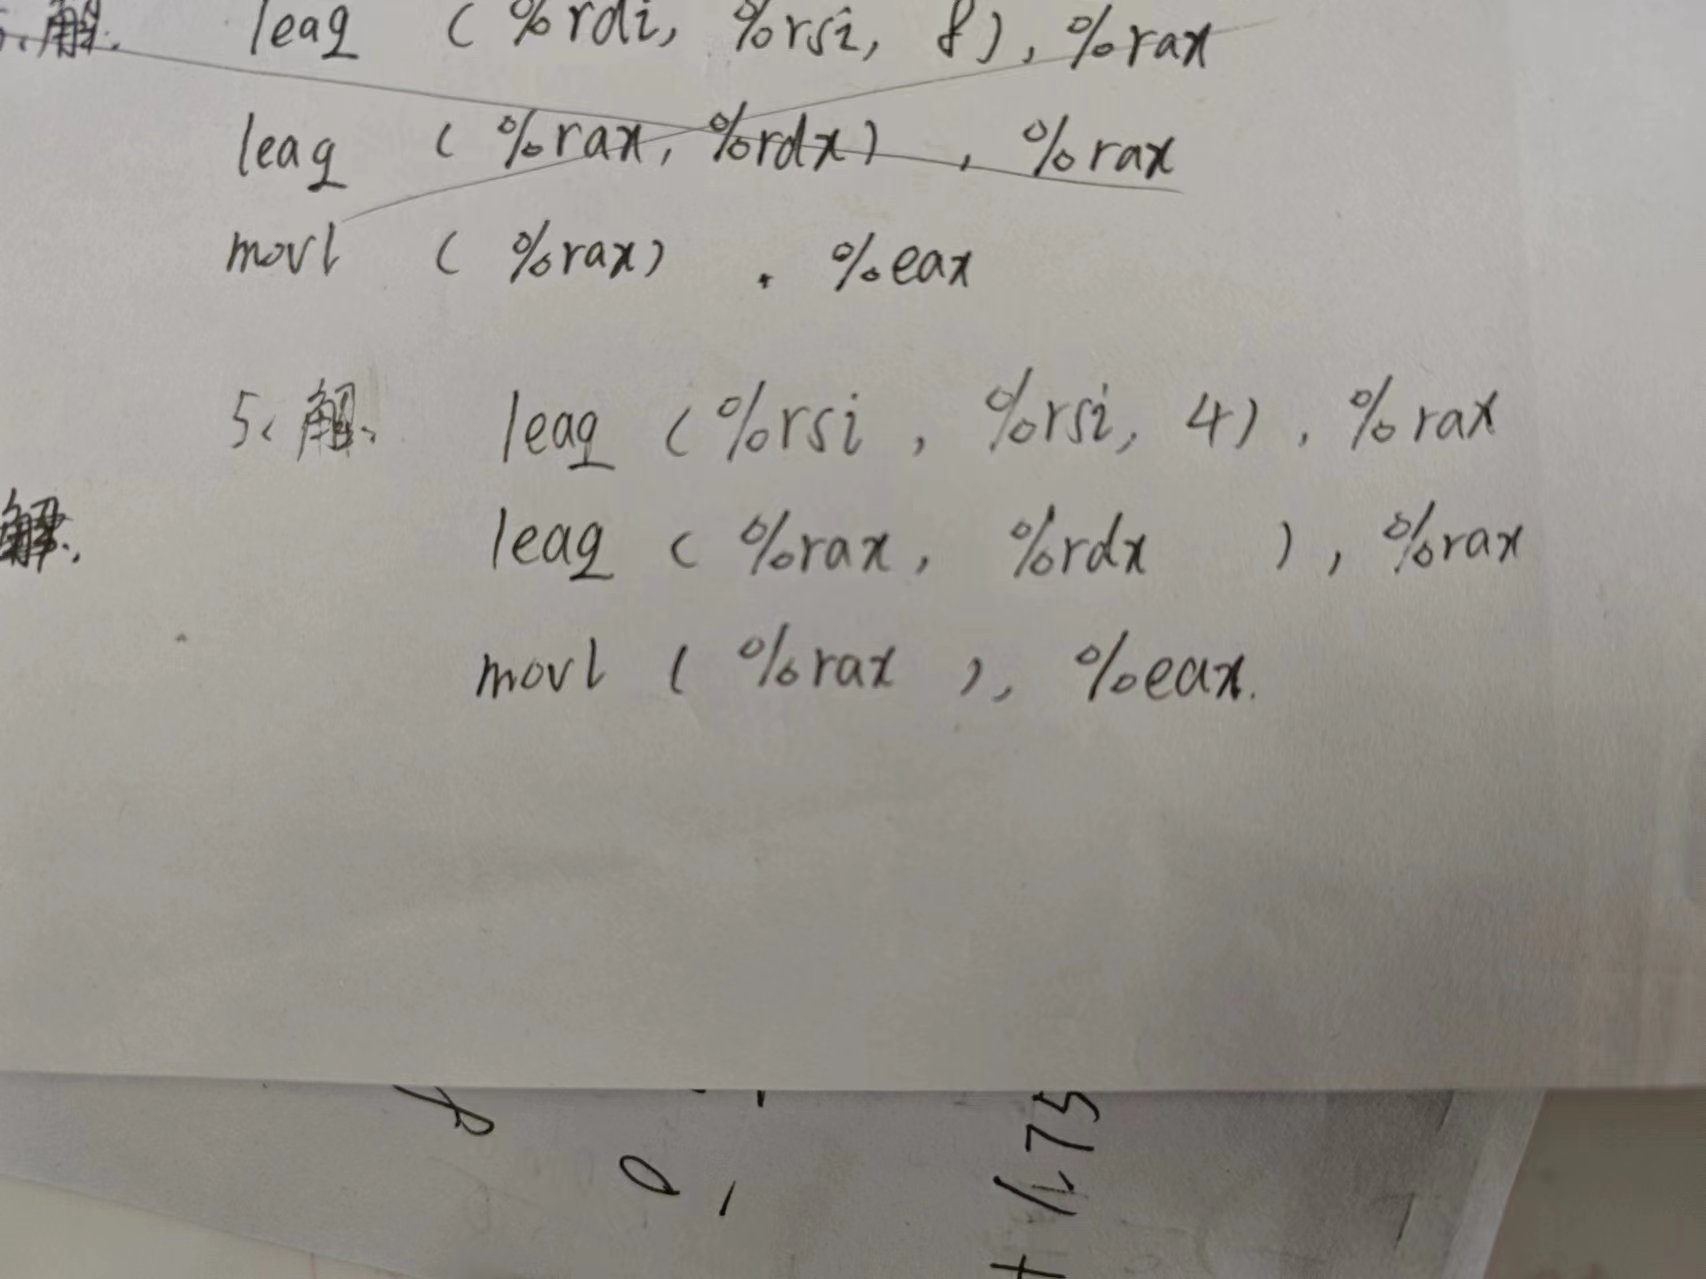 解. leaq (%rdi, %rsi, 8), %rax
leaq (%rax, %rdx), %rax
movl (%rax) , %eax
5、解、 leaq (%rsi, %rsi, 4), %rax
leaq (%rax, %rdx ), %rax
解.
movl (%rax ), %eax.